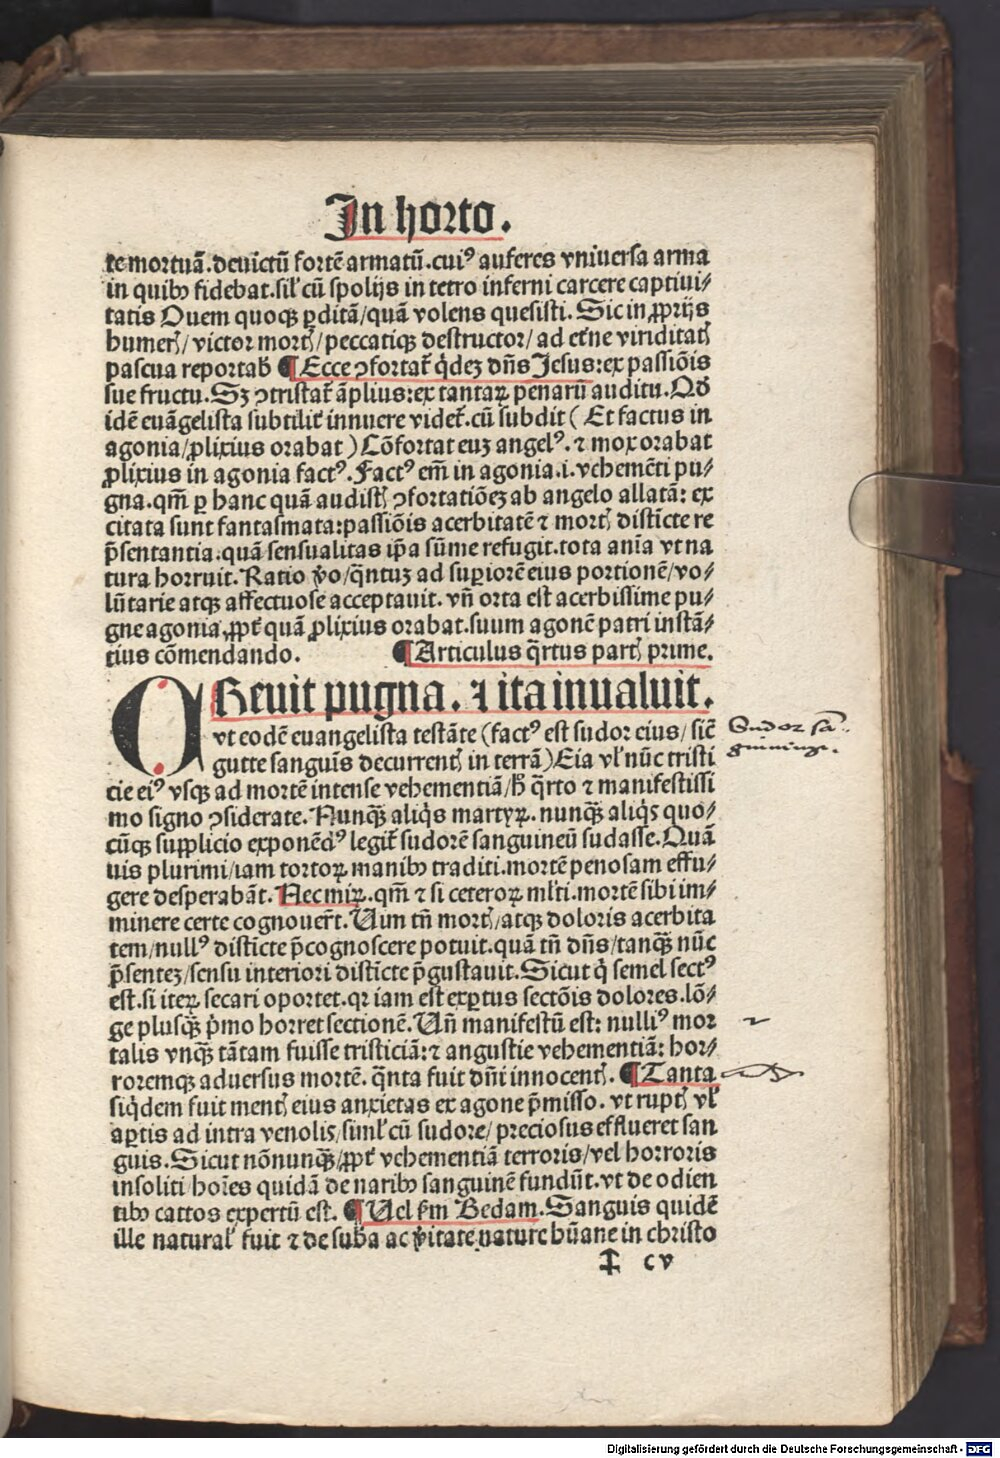 In horto.
te mortuã.deuictũ fortẽ armatũ.cuiꝰ auferes vniuersa arma
in quibꝫ fidebat.sil' cũ spolijs in tetro inferni carcere captiui⸗
tatis Quem quoqꝫ ꝑditã/quã volens quesisti.Sic in ꝓprijs
humerꝭ/victor mortꝭ/peccatiqꝫ destructor/ad etẽne viriditatꝭ
pascua reportab̃ ¶Ecce ꝯfortat᷑ q̇dez dñs Jesus:ex passiõis
sue fructu.Sꝫ ꝯtristat᷑ ãplius:ex tantaꝝ penarũ auditu.Qđ
idẽ euãgelista subtilit᷑ innuere videt᷑.cũ subdit ( Et factus in
agonia/ꝓlixius orabat ) Cõfortat euꝫ angelꝰ.⁊ mox orabat
ꝓlixius in agonia factꝰ.Factꝰ em̃ in agonia.i.vehemẽti pu⸗
gna.qm̃ ꝑ hanc quã audistꝭ ꝯfortatiõeꝫ ab angelo allatã: ex
citata sunt fantasmata:passiõis acerbitatẽ ⁊ mortꝭ distĩcte re
p̃sentantia.quã sensualitas ip̃a sũme refugit.tota anĩa vt na
tura horruit.Ratio ṽo/q̃ntuꝫ ad suꝑiorẽ eius portionẽ/vo⸗
lũtarie atqꝫ affectuose acceptauit. vñ orta est acerbissime pu⸗
gne agonia/ꝓpt᷑ quã ꝓlixius orabat.suum agonẽ patri instã⸗
tius cõmendando. ¶Articulus q̃rtus partꝭ prime.
CReuit pugna. ⁊ ita inualuit.
vt eodẽ euangelista testãte (factꝰ est sudor eius/ sic̃
gutte sanguis decurrentꝭ in terrã) Eia vl' nũc tristi
cie eiꝰ vsqꝫ ad mortẽ intense vehementiã/h̃ q̃rto ⁊ manifestissi
mo signo ꝯsiderate.Nunqꝫ̃ aliq̇s martyꝝ. nunqꝫ̃ aliq̇s quo⸗
cũqꝫ supplicio exponẽdꝰ legit᷑ sudorẽ sanguineũ sudasse.Quã
uis plurimi/iam tortoꝝ manibꝫ traditi.mortẽ penosam effu⸗
gere desperabãt. Nec miꝝ.qm̃ ⁊ si ceteroꝝ ml'ti.mortẽ sibi im⸗
minere certe cognouer̃t.Uim tñ mortꝭ/atqꝫ doloris acerbita
tem/nullꝰ distĩcte p̃cognoscere potuit.quã tñ dñs/tanqꝫ̃ nũc
p̃senteꝫ/sensu interiori distĩcte p̃gustauit.Sicut q̇ semel sectꝰ
est.si iteꝝ secari oportet.qꝛ iam est exꝑtus sectõis dolores.lõ⸗
ge plusqꝫ̃ p̃mo horret sectionẽ.Uñ manifestũ est: nulliꝰ mor
talis vnqꝫ̃ tãtam fuisse tristiciã:⁊ angustie vehementiã: hor⸗
roremqꝫ aduersus mortẽ. q̃nta fuit dñi innocentꝭ. ¶Tanta
siq̇dem fuit mentꝭ eius anxietas ex agone p̃misso. vt ruptꝭ vl'
aꝑtis ad intra venolis/simul' cũ sudore/ preciosus efflueret san
guis.Sicut nõnunqꝫ̃/ꝓpt᷑ vehementiã terroris/vel horroris
insoliti hoĩes quidã de naribꝫ sanguinẽ fundũt.vt de odien
tibꝫ cattos expertũ est. ¶Uel scd̃m Bedam.Sanguis quidẽ
ille natural' fuit ⁊ de sub̃a ac ṽitate nature hũane in christo
‡ cv
Sudor sã⸗
guineus.